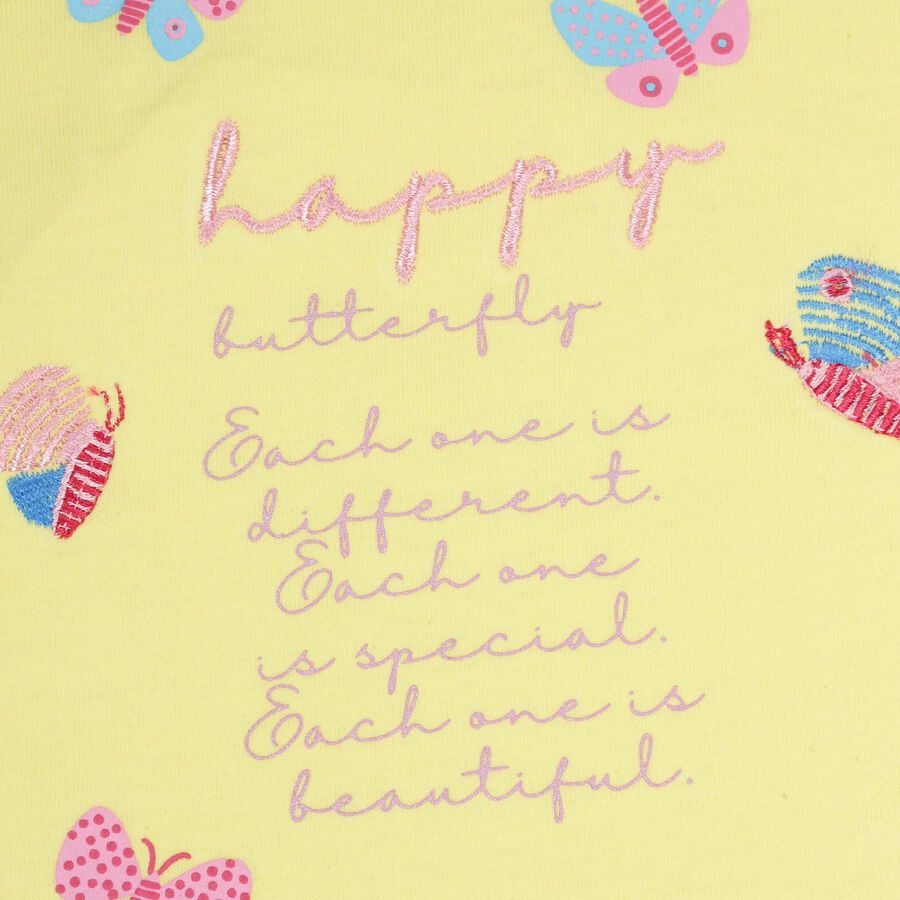 happy
butterfly
Each one is
different.
Each one
is special.
Each one is
beautiful.